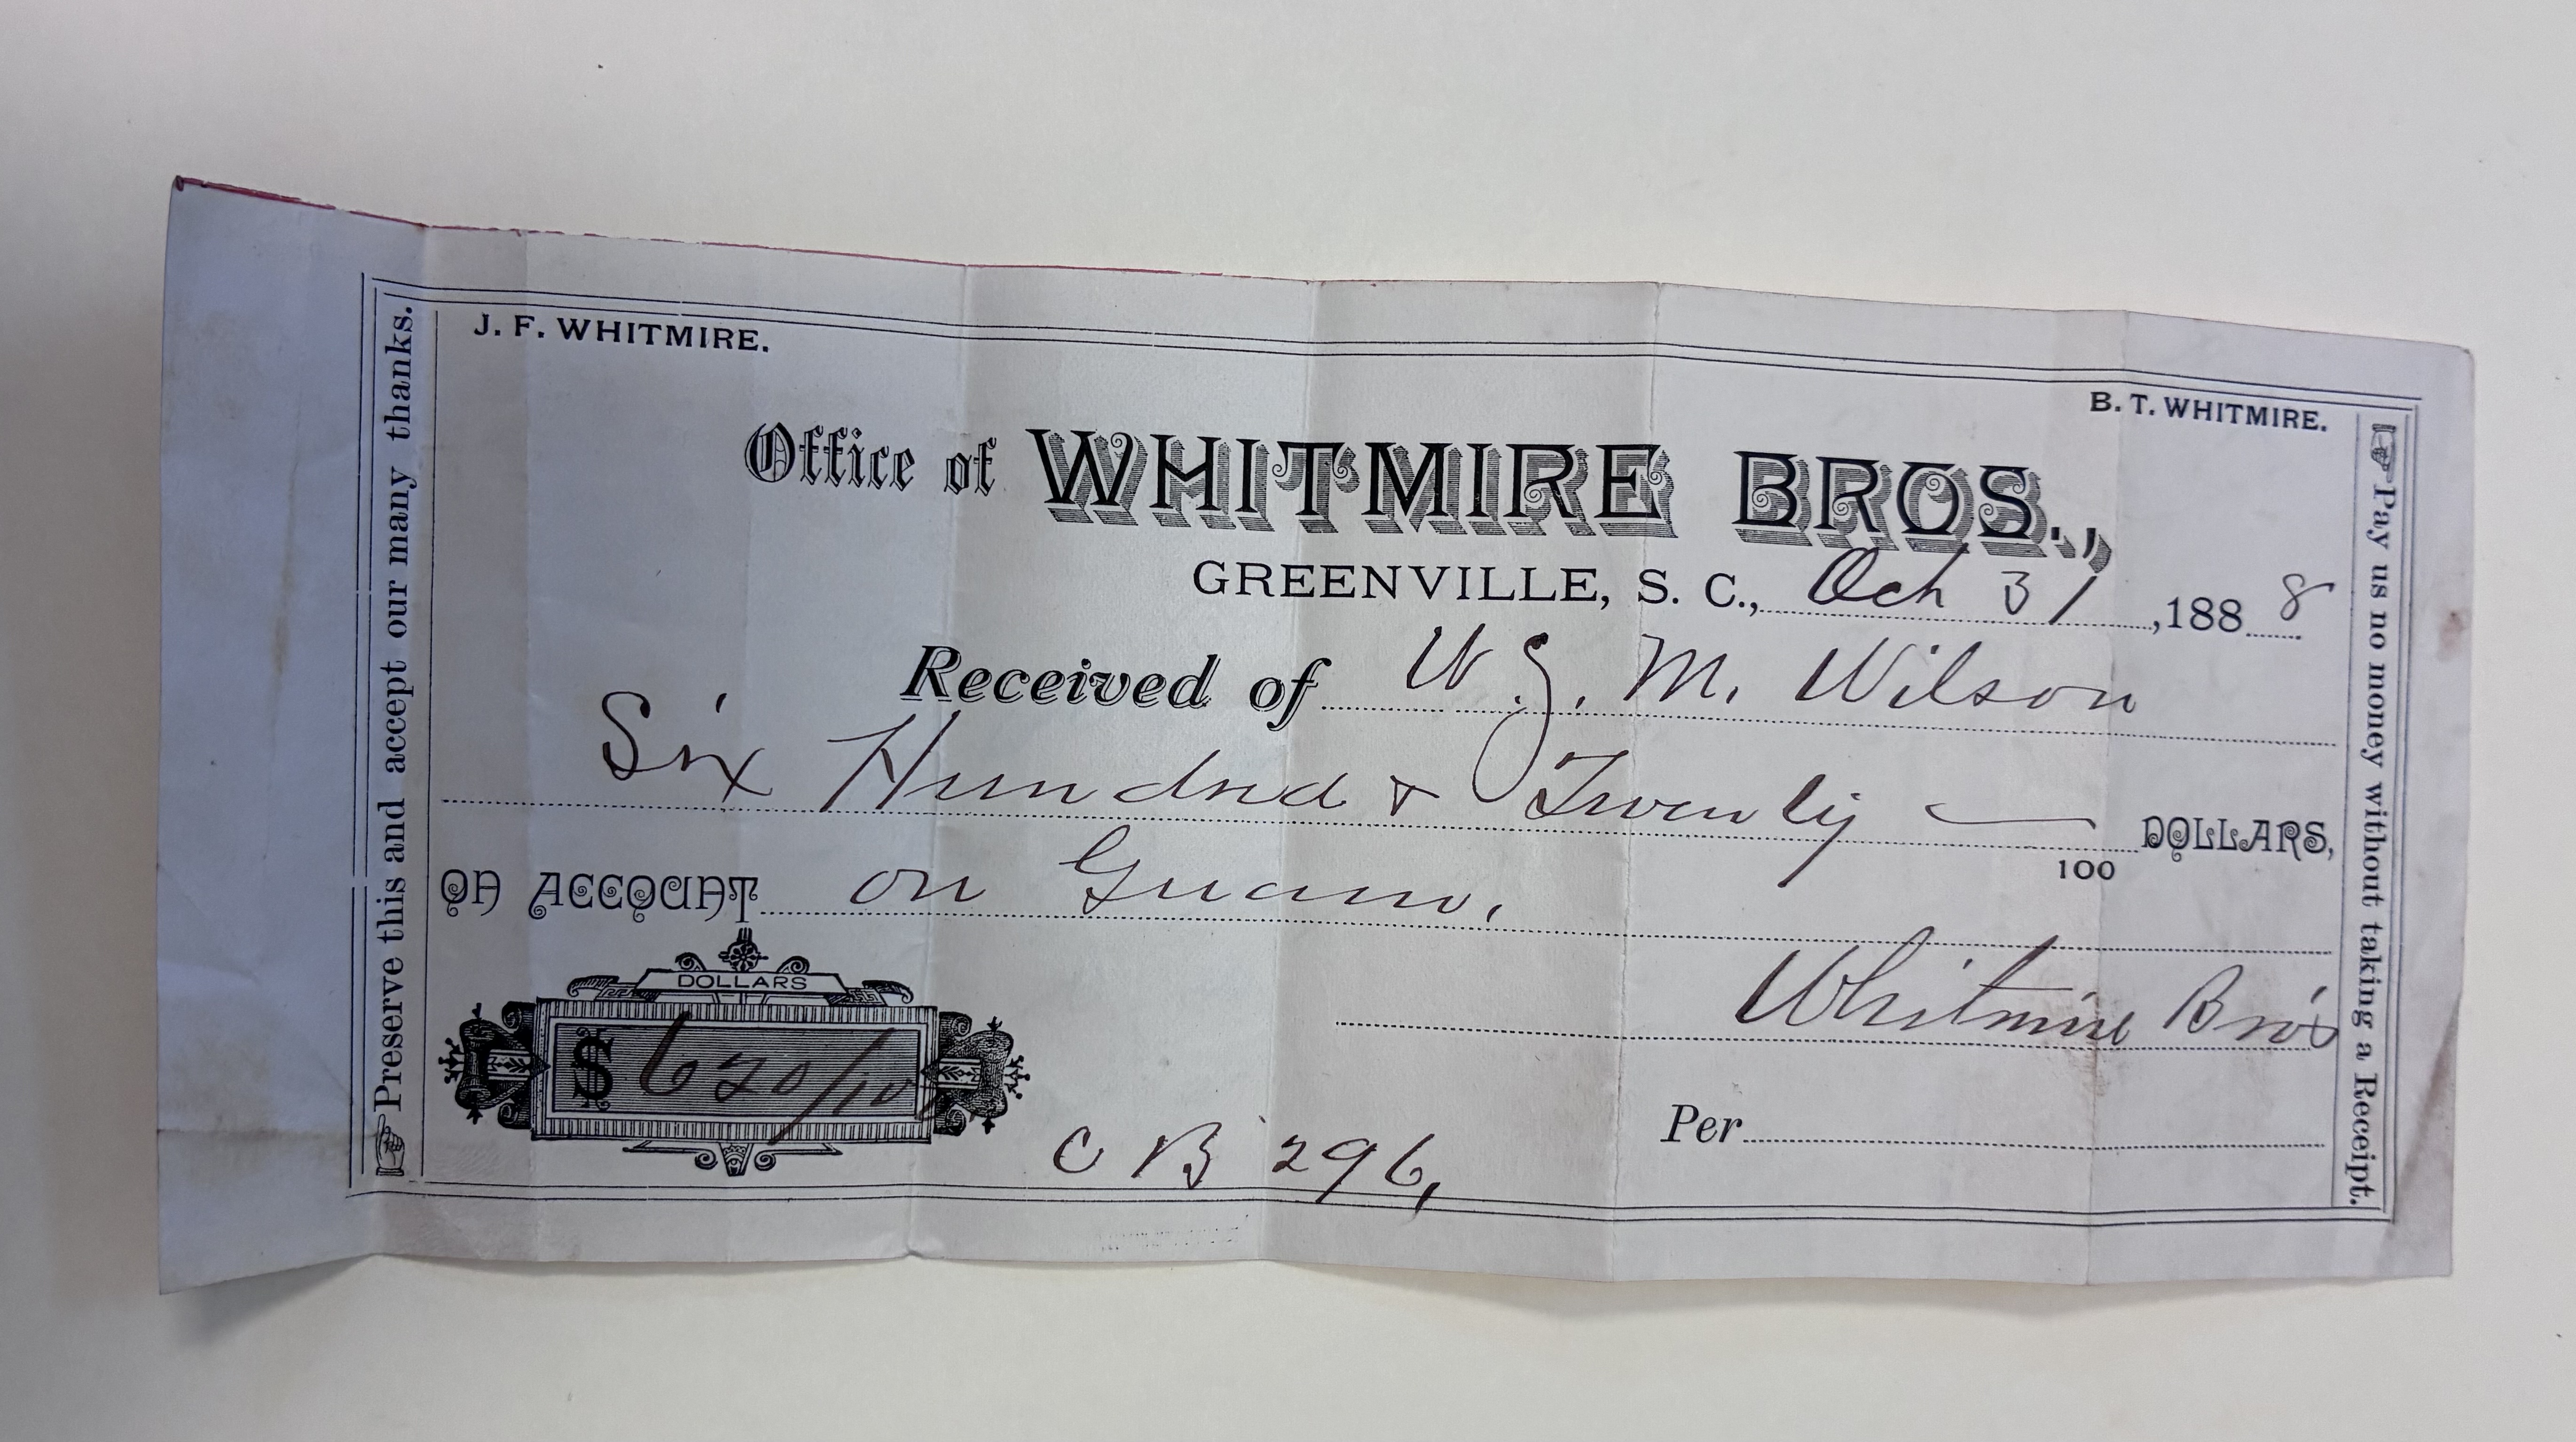 J. F. WHITMIRE.
B. T. WHITMIRE.
Office of WHITMIRE BROS.,
GREENVILLE, S. C., Oct 31, 1888
Received of W. J. M. Wilson
Six Hundred & Twenty — DOLLARS,
100
ON ACCOUNT on Guano.
DOLLARS
$ 620/100
Whitmire Bros
Per
C B 296,
Preserve this and accept our many thanks.
Pay us no money without taking a Receipt.